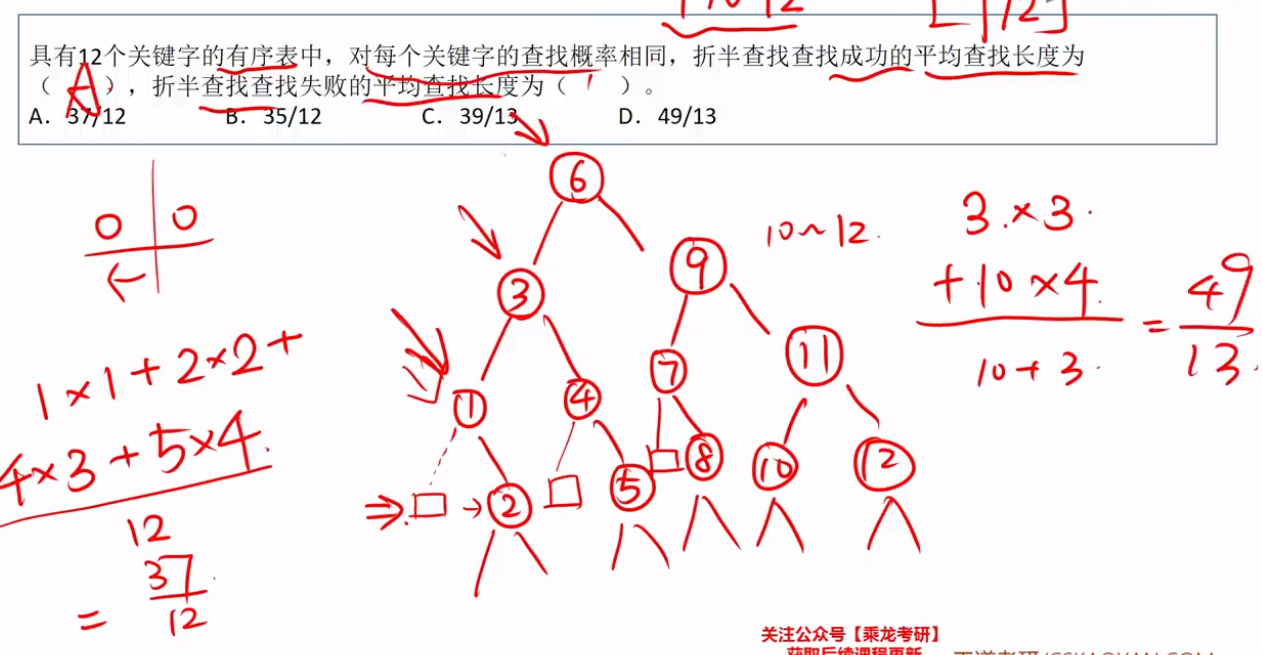 12]
具有12个关键字的有序表中，对每个关键字的查找概率相同，折半查找查找成功的平均查找长度为
（ A ），折半查找查找失败的平均查找长度为（ ）。
A. 37/12 B. 35/12 C. 39/13 D. 49/13
6
3 9 10~12
1 4 7 11
2 5 8 10 12
0 0
←
1×1+2×2+
4×3+5×4
12
= 37
12
3×3
+10×4
10+3
= 49
13
关注公众号【乘龙考研】
获取后续课程更新